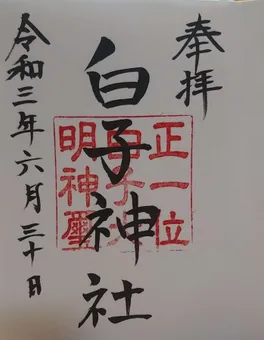 奉拝
白子神社
正一位
白子大
明神璽
令和三年六月三十日